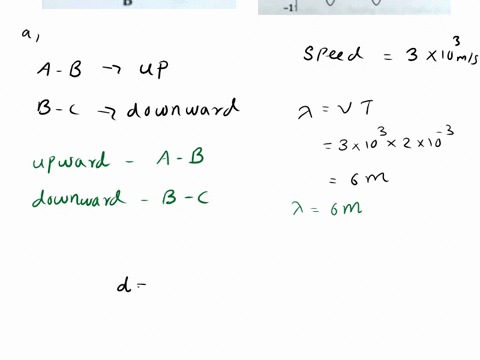 B
-1
a,
A-B → up
B-C → downward
upward - A-B
downward - B-C
speed = 3 × 10³ m/s
λ = v T
= 3 × 10³ × 2 × 10⁻³
= 6 m
λ = 6 m
d =